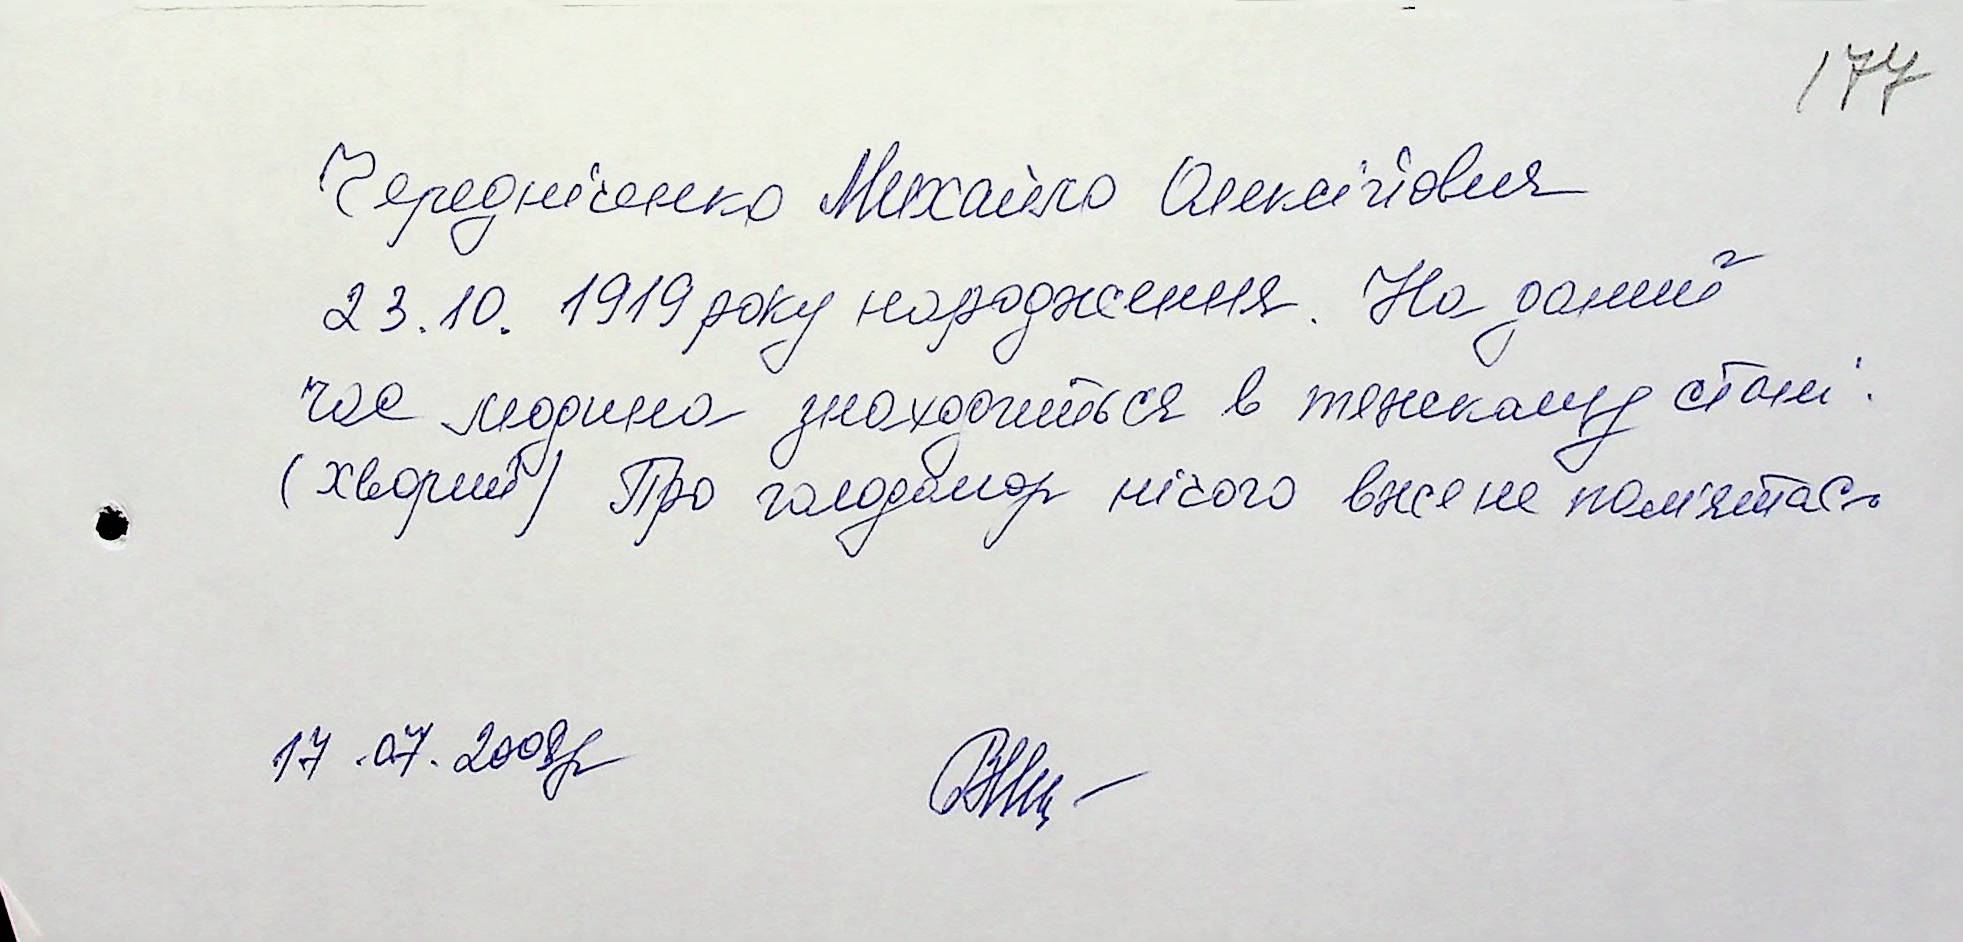 177
Чередніченко Михайло Олексійович
23.10.1919 року народження. На даний
час людина знаходиться в тяжкому стані.
(хворий) Про голодомор нічого вже не пам'ятає
17.07.2008р